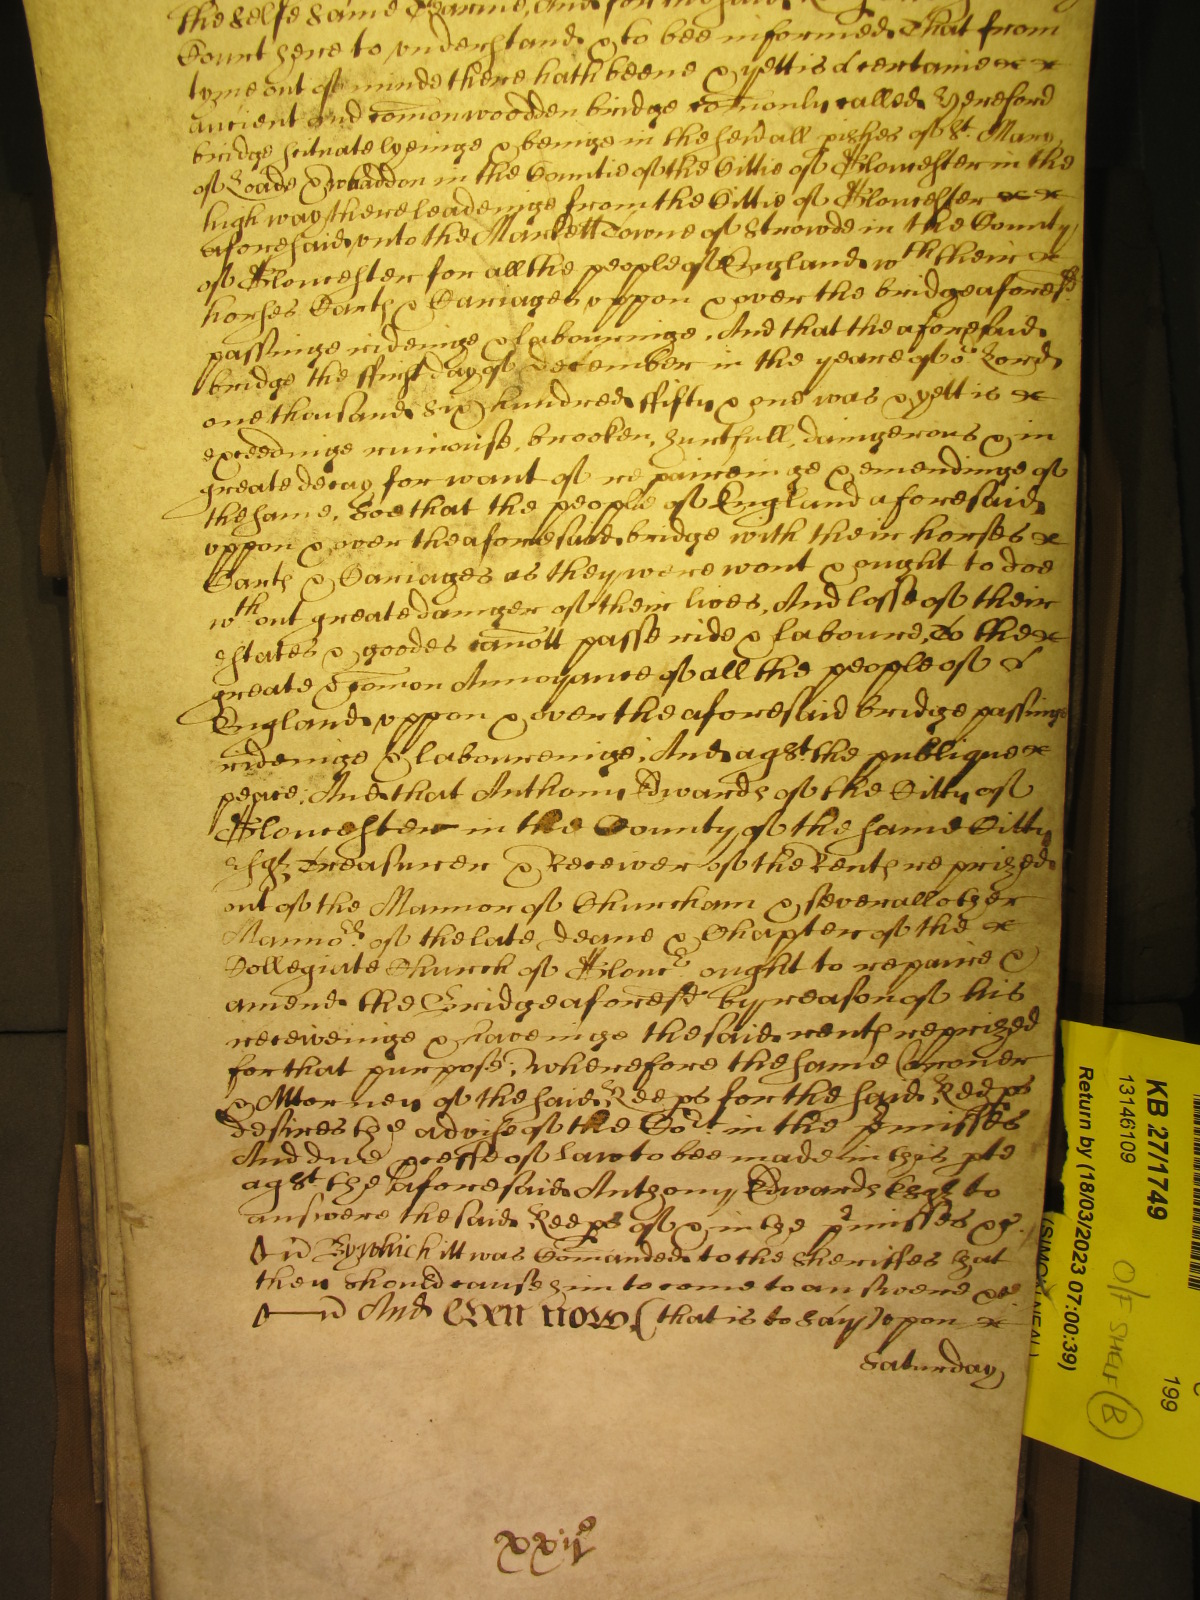 the selfe same Tearme, And for the said Keep
Court here to understand & to bee informed That from
tyme out of minde there hath beene & yett is a certaine
ancient and com̄on woodden bridge com̄only called Hereford
bridge scituate lyeinge & beinge in the severall pishes of St. Mary
of Loade & Whaddon in the Countie of the Cittie of Gloucester in the
high way there leadeinge from the Cittie of Gloucester
aforesaid unto the Markett Towne of Strowde in the County
of Gloucester for all the people of England wth their
horses Carts & Cariages uppon & over the bridge aforesd
passinge rideinge & labouringe, And that the aforesaid
bridge the ffirst day of December in the yeare of or Lord
one thousand six hundred ffifty & one was & yett is
exceedinge ruinouse, brooken, hurtfull, daingerous & in
greate decay for want of repaireinge & emendinge of
the same, Soe that the people of England aforesaid
uppon & over the aforesaid bridge with their horses
Carts & Cariages as they were wont & ought to doe
wth out greate dainger of their lives, And losse of their
estates & goodes can̄ott passe ride & laboure, To the
greate & com̄on Annoyance of all the people of
England uppon & over the aforesaid bridge passinge
rideinge & laboureinge, And agst. the publique
peace, And that Anthony Edwards of the Citty of
Gloucester in the County of the same Citty
Esqr, Treasurer & Receiver of the Rents reprized
out of the Mannor of Churcham & severall other
Mannors. of the late Deane & Chapter of the
Collegiate Church of Glouc ought to repaire &
amend the Bridge aforesd by reason of his
receiveinge & haveinge the said rents reprized
for that purpose, Wherefore the same Coroner
& Attorney of the said Keeps for the said Keeps
desires the advise of the Cort. in the pmisses
And due pcesse of Law to bee made in this pte
agst the aforesaid Anthony Edwards Esqr to
answere the said Keeps of & in the pmisses &c.
By which itt was Com̄anded to the Sheriffes that
they should cause him to come to answere &c
And Even now (that is to say) upon
Saturday
xxijo
KB 27/1749
13146109
Return by (18/03/2023 07:00:39)
(SIMON NEAL)
O/F SHELF B
199